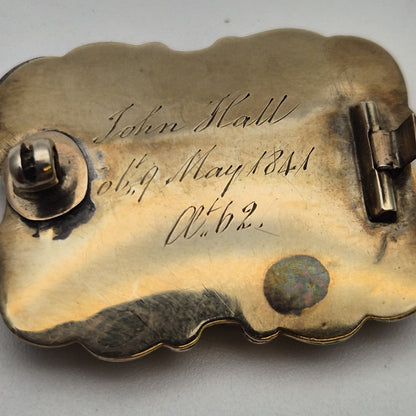 John Hall
obt. 9 May 1841
Æt. 62.